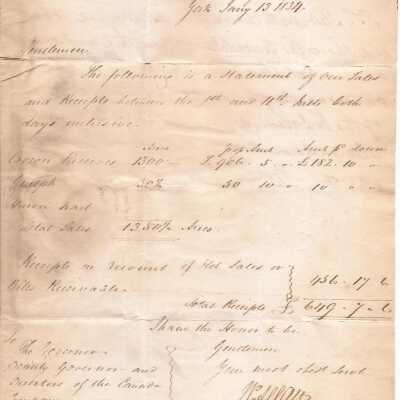 York Jany 13 1834.
Gentlemen
The following is a statement of our Sales
and Receipts between the 1st and 11th Insts both
days inclusive.
Acres
Crown Reserves 1300 £906 5 „ £182. 10 „
Guelph 50 10 „ 10 „ „
Huron tract
Total Sales Acres
Receipts on account of Old Sales or
Bills Receivable 456 - 17 - 6
Total Receipts £ 649 - 7 - 6
I have the Honor to be
Gentlemen
Your most obedt Servt
To
The Governor
Deputy Governor and
Directors of the Canada
Company